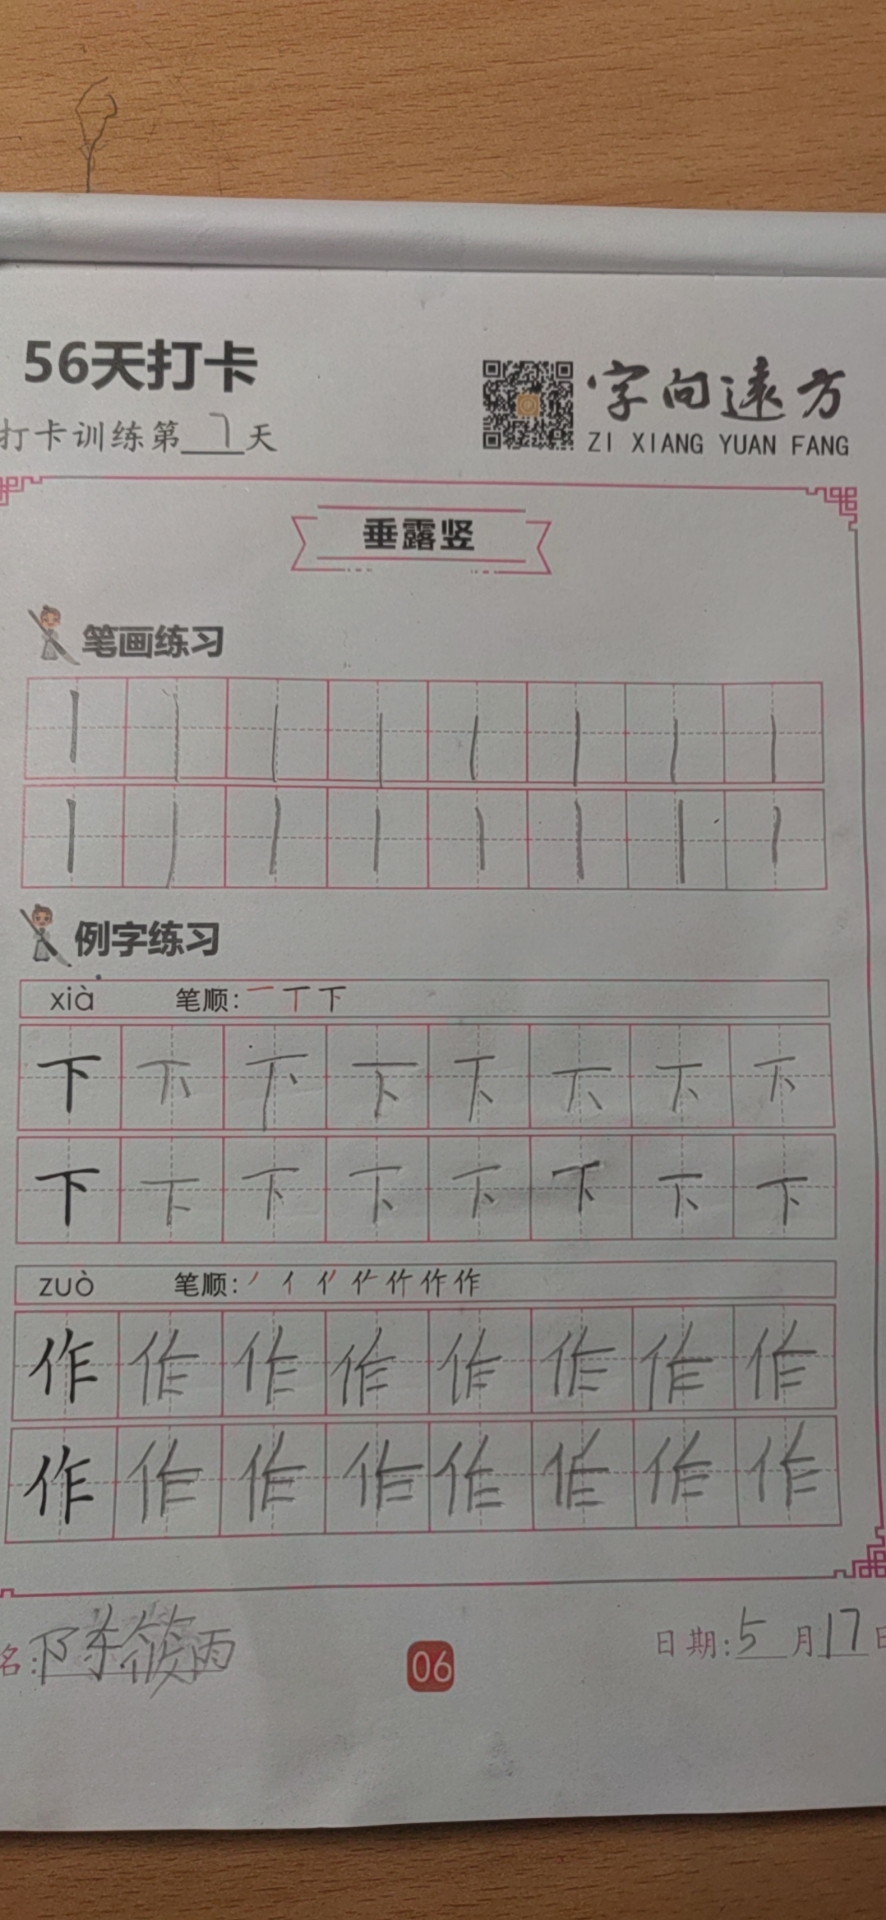 56天打卡
打卡训练第7天
字向远方
ZI XIANG YUAN FANG
垂露竖
笔画练习
例字练习
xià 笔顺: 一 丅 下
下 下 下 下 下 下 下 下
下 下 下 下 下 下 下 下
zuò 笔顺: 丿 亻 作
作 作 作 作 作 作 作 作
作 作 作 作 作 作 作 作
名: 陈筱雨
06
日期: 5月17日